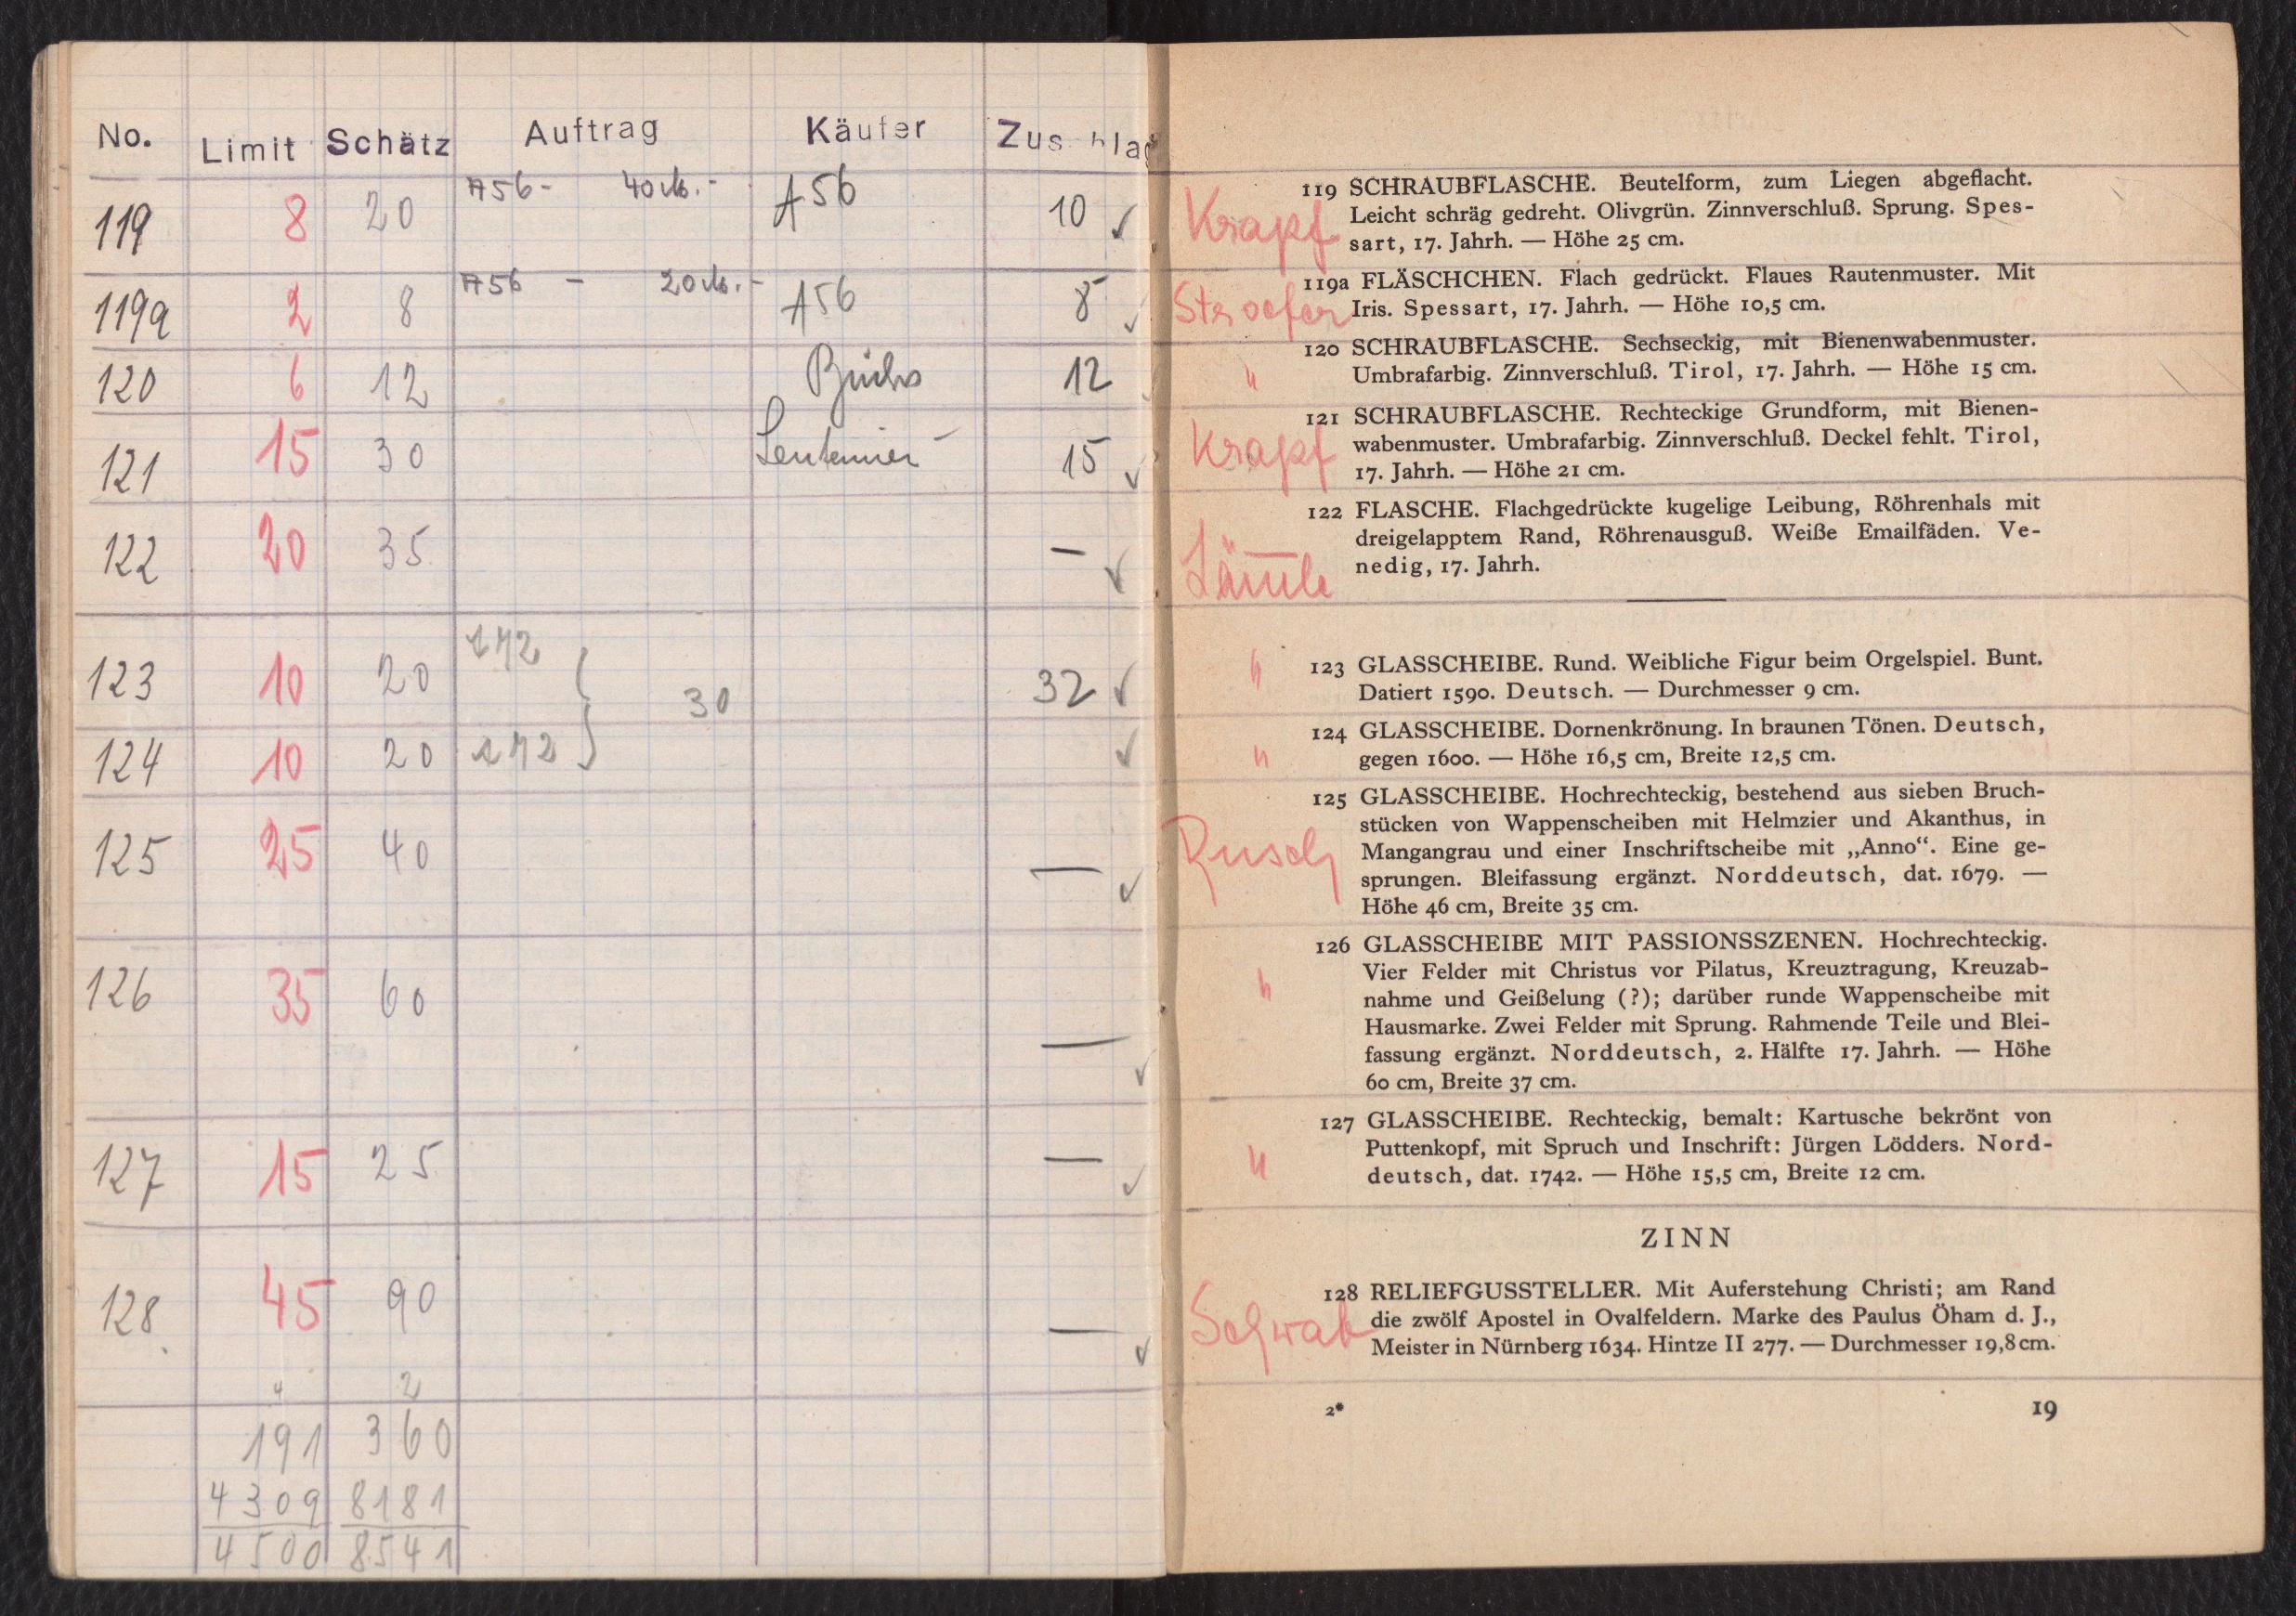 No. Limit Schätz Auftrag Käufer Zus hlag
119 8 20 A56 - 40 M.- A56 10 ✓
119a 2 8 A56 - 20 M.- A56 8 ✓
120 6 12 12
121 15 30 15 ✓
122 20 35 — ✓
123 10 20 172 } 30 32 ✓
124 10 20 172 ✓
125 25 40 — ✓
126 35 60 — ✓
127 15 25 — ✓
128 45 90 — ✓
4 2
191 360
4309 8181
4500 8541
119 SCHRAUBFLASCHE. Beutelform, zum Liegen abgeflacht.
Krapf Leicht schräg gedreht. Olivgrün. Zinnverschluß. Sprung. Spes-
sart, 17. Jahrh. — Höhe 25 cm.
119a FLÄSCHCHEN. Flach gedrückt. Flaues Rautenmuster. Mit
Stroefer Iris. Spessart, 17. Jahrh. — Höhe 10,5 cm.
120 SCHRAUBFLASCHE. Sechseckig, mit Bienenwabenmuster.
" Umbrafarbig. Zinnverschluß. Tirol, 17. Jahrh. — Höhe 15 cm.
121 SCHRAUBFLASCHE. Rechteckige Grundform, mit Bienen-
Krapf wabenmuster. Umbrafarbig. Zinnverschluß. Deckel fehlt. Tirol,
17. Jahrh. — Höhe 21 cm.
122 FLASCHE. Flachgedrückte kugelige Leibung, Röhrenhals mit
dreigelapptem Rand, Röhrenausguß. Weiße Emailfäden. Ve-
Lämle nedig, 17. Jahrh.
" 123 GLASSCHEIBE. Rund. Weibliche Figur beim Orgelspiel. Bunt.
Datiert 1590. Deutsch. — Durchmesser 9 cm.
124 GLASSCHEIBE. Dornenkrönung. In braunen Tönen. Deutsch,
" gegen 1600. — Höhe 16,5 cm, Breite 12,5 cm.
125 GLASSCHEIBE. Hochrechteckig, bestehend aus sieben Bruch-
stücken von Wappenscheiben mit Helmzier und Akanthus, in
Rusch Mangangrau und einer Inschriftscheibe mit „Anno“. Eine ge-
sprungen. Bleifassung ergänzt. Norddeutsch, dat. 1679. —
Höhe 46 cm, Breite 35 cm.
126 GLASSCHEIBE MIT PASSIONSSZENEN. Hochrechteckig.
" Vier Felder mit Christus vor Pilatus, Kreuztragung, Kreuzab-
nahme und Geißelung (?); darüber runde Wappenscheibe mit
Hausmarke. Zwei Felder mit Sprung. Rahmende Teile und Blei-
fassung ergänzt. Norddeutsch, 2. Hälfte 17. Jahrh. — Höhe
60 cm, Breite 37 cm.
127 GLASSCHEIBE. Rechteckig, bemalt: Kartusche bekrönt von
" Puttenkopf, mit Spruch und Inschrift: Jürgen Lödders. Nord-
deutsch, dat. 1742. — Höhe 15,5 cm, Breite 12 cm.
ZINN
128 RELIEFGUSSTELLER. Mit Auferstehung Christi; am Rand
Schwab die zwölf Apostel in Ovalfeldern. Marke des Paulus Öham d. J.,
Meister in Nürnberg 1634. Hintze II 277. — Durchmesser 19,8 cm.
2*
19